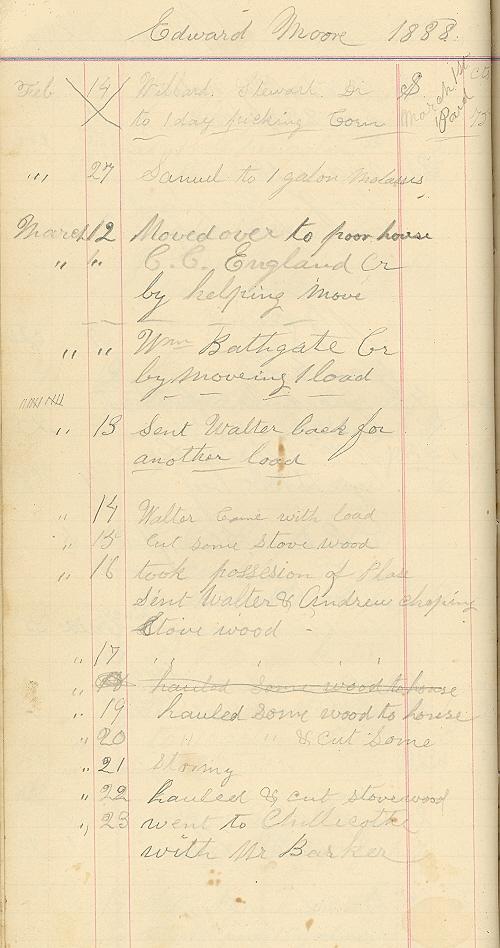 Edward Moore 1888.
Feb 14 Willard. Stewart. Dr $
to 1 day picking Corn
March 1st
Paid
75
,,, 27 Samuel to 1 galon Molasses
March 12 Moved over to poor house
" " C. C. England Cr
by helping Move
" " Wm Bathgate Cr
by Moveing 1 load
" 13 Sent Walter back for
another load
" 14 Walter Came with load
" 15 Cut some stove wood
" 16 took possesion of Plase
Sent Walter & Andrew choping
Stove wood -
" 17 " " "
" 18 hauled some wood to house
" 19 hauled some wood to house
" 20 " " & cut some
" 21 Stormy
" 22 hauled & cut stovewood
" 23 went to Chillicothe
with Mr Barker